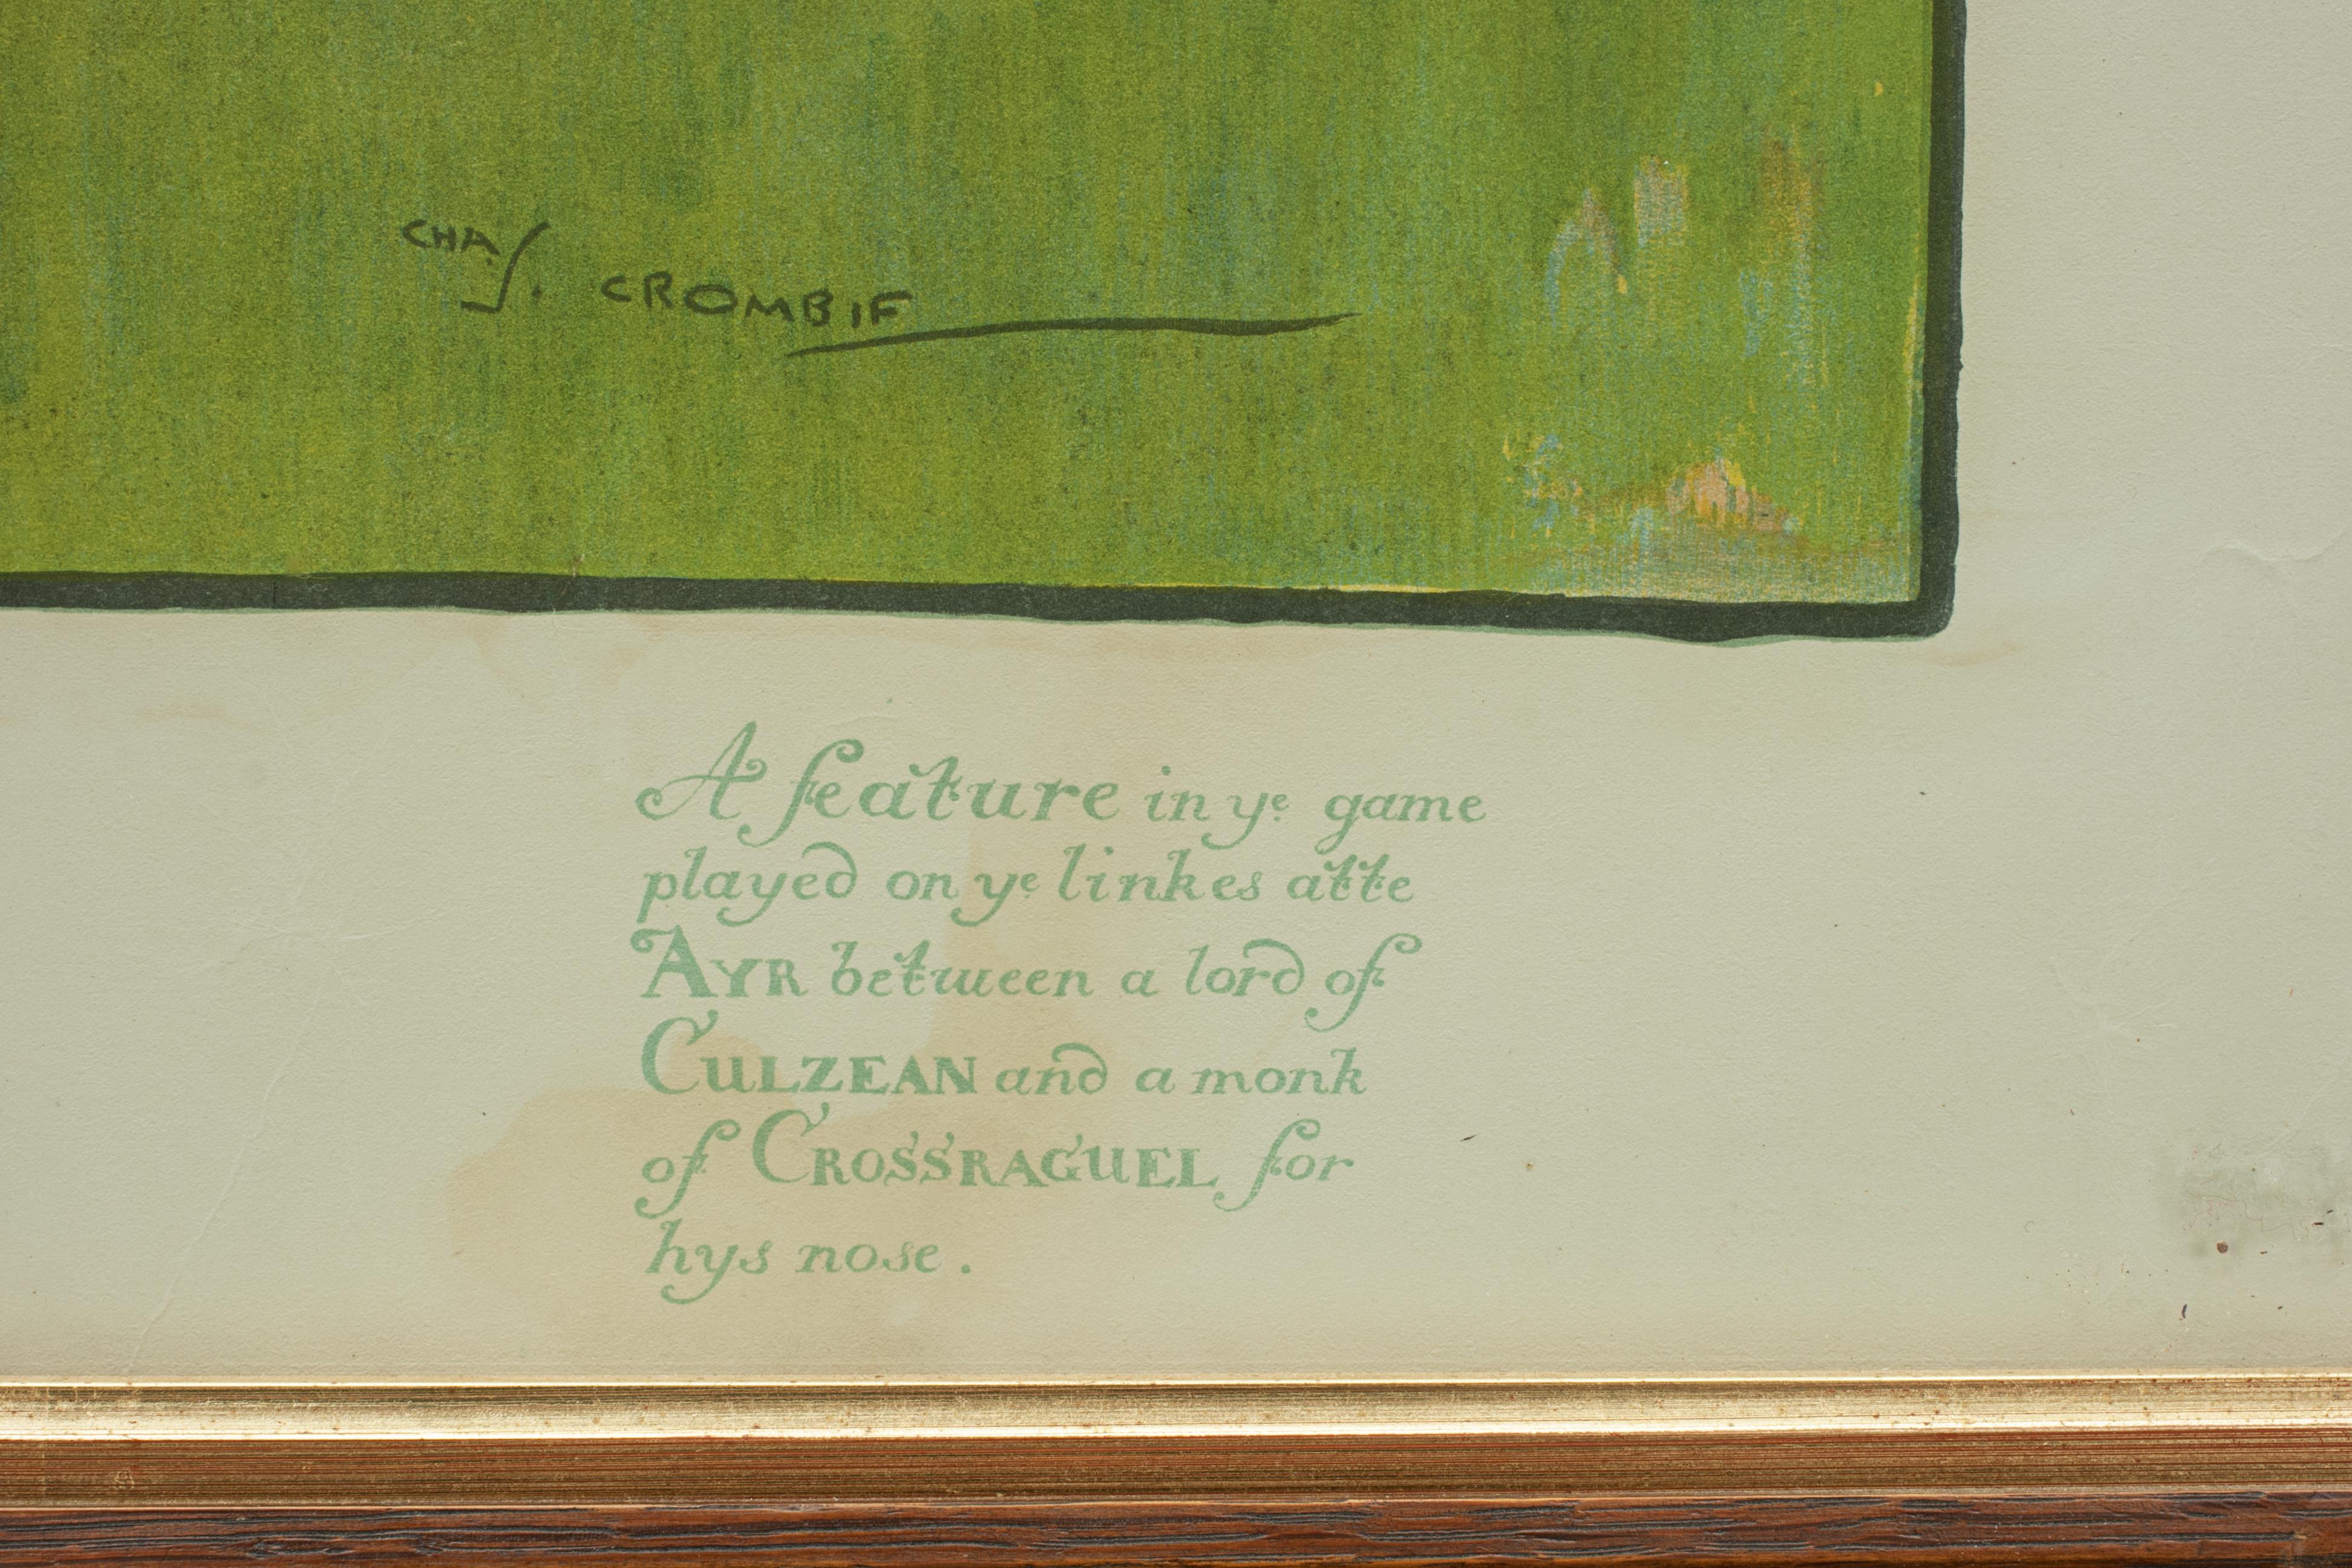 CHAS. CROMBIE
A feature in ye game
played on ye linkes atte
AYR between a lord of
CULZEAN and a monk
of CROSSRAGUEL for
hys nose.